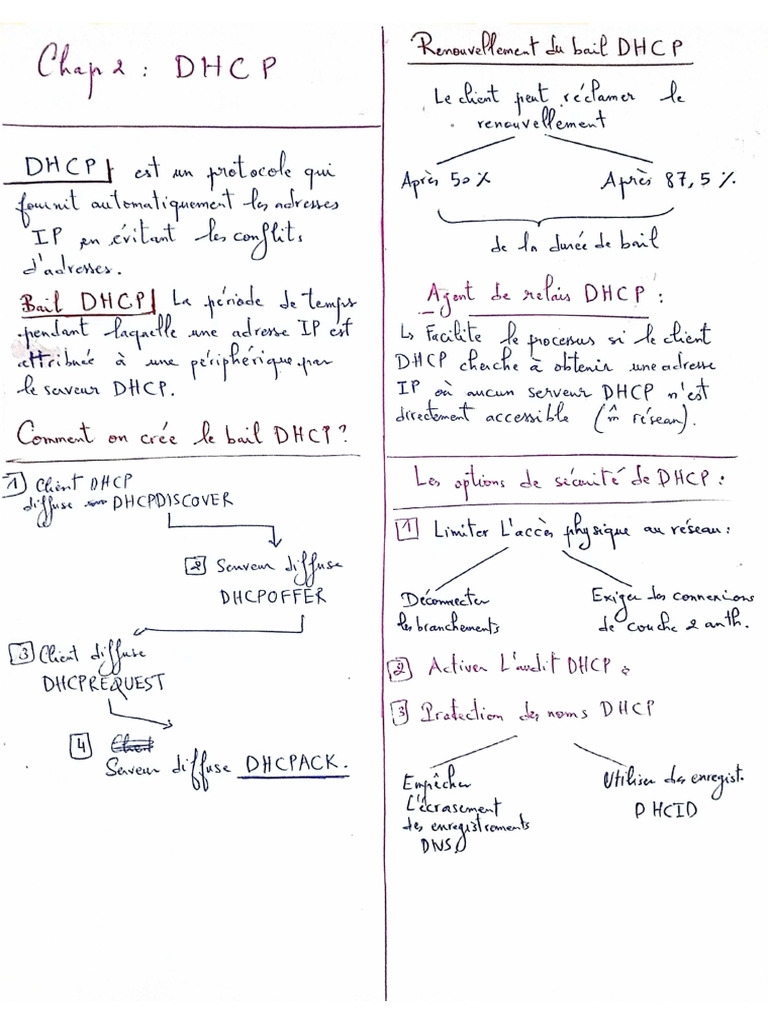 Chap 2 : DHCP
DHCP est un protocole qui
fournit automatiquement les adresses
IP en évitant les conflits
d'adresses.
Bail DHCP La période de temps
pendant laquelle une adresse IP est
attribuée à une périphérique par
le serveur DHCP.
Comment on crée le bail DHCP ?
1 Client DHCP
diffuse DHCPDISCOVER
2 Serveur diffuse
DHCPOFFER
3 Client diffuse
DHCPREQUEST
4 Client
Serveur diffuse DHCPACK.
Renouvellement du bail DHCP
Le client peut réclamer le
renouvellement
Après 50 % Après 87,5 %.
de la durée de bail
Agent de relais DHCP :
↳ Facilite le processus si le client
DHCP cherche à obtenir une adresse
IP où aucun serveur DHCP n'est
directement accessible (m̂ réseau).
Les options de sécurité de DHCP :
1 Limiter L'accès physique au réseau :
Déconnecter
les branchements
Exiger des connexions
de couche 2 auth.
2 Activer L'audit DHCP :
3 Protection des noms DHCP
Empêcher
L'écrasement
des enregistrements
DNS
Utiliser des enregist.
DHCID